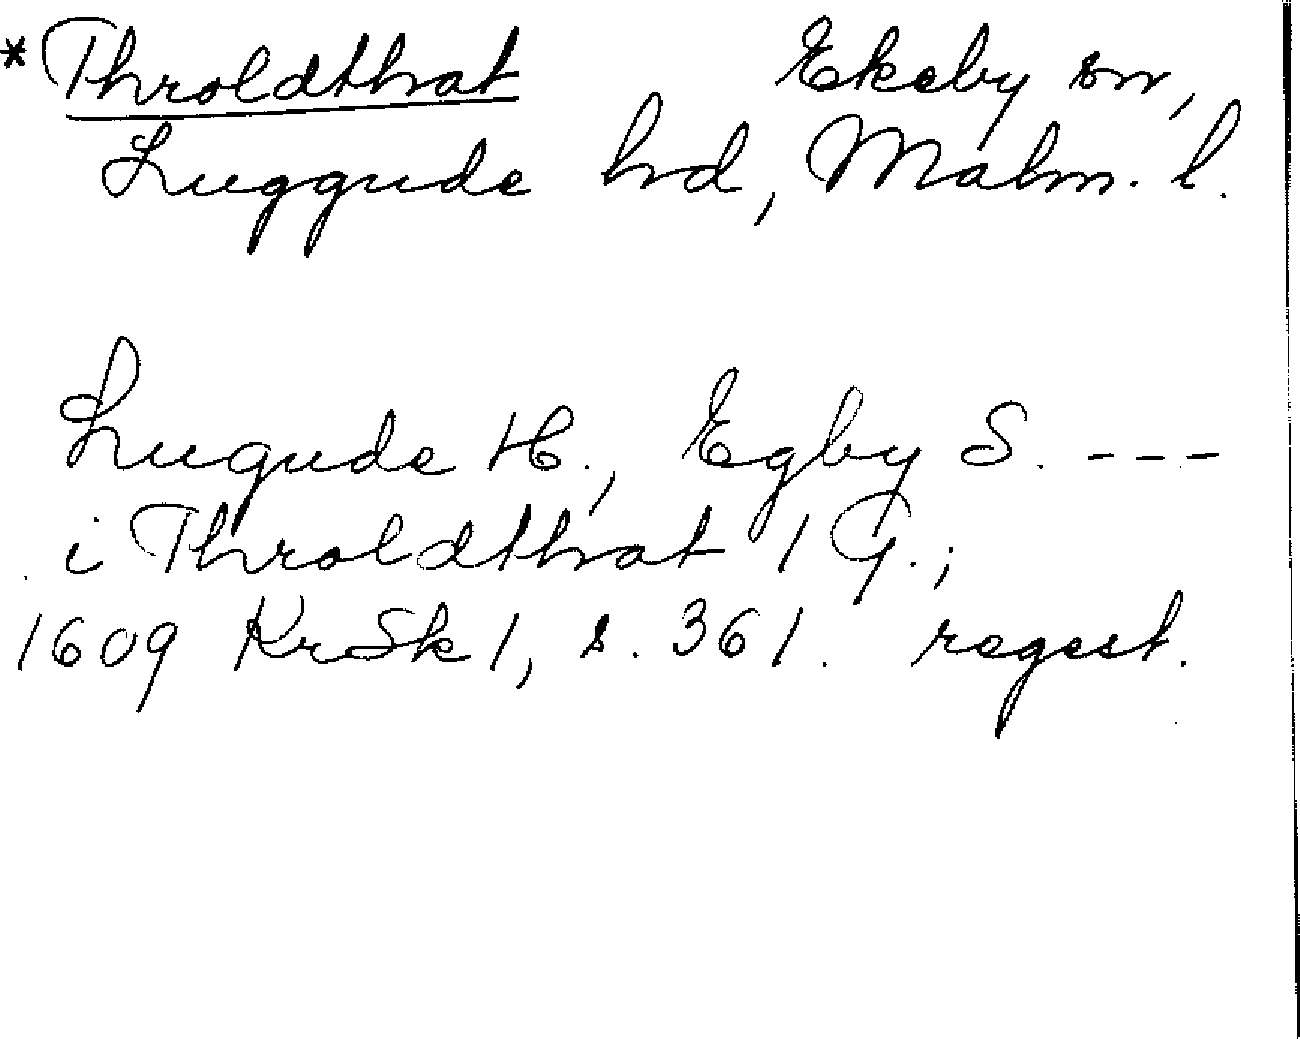 *Throldthvat Ekeby sn,
Luggude hd, Malm. l.
Lugude H., Egby S. ---
i Throldthvat 1 G.;
1609 KrSk 1, s. 361. regest.